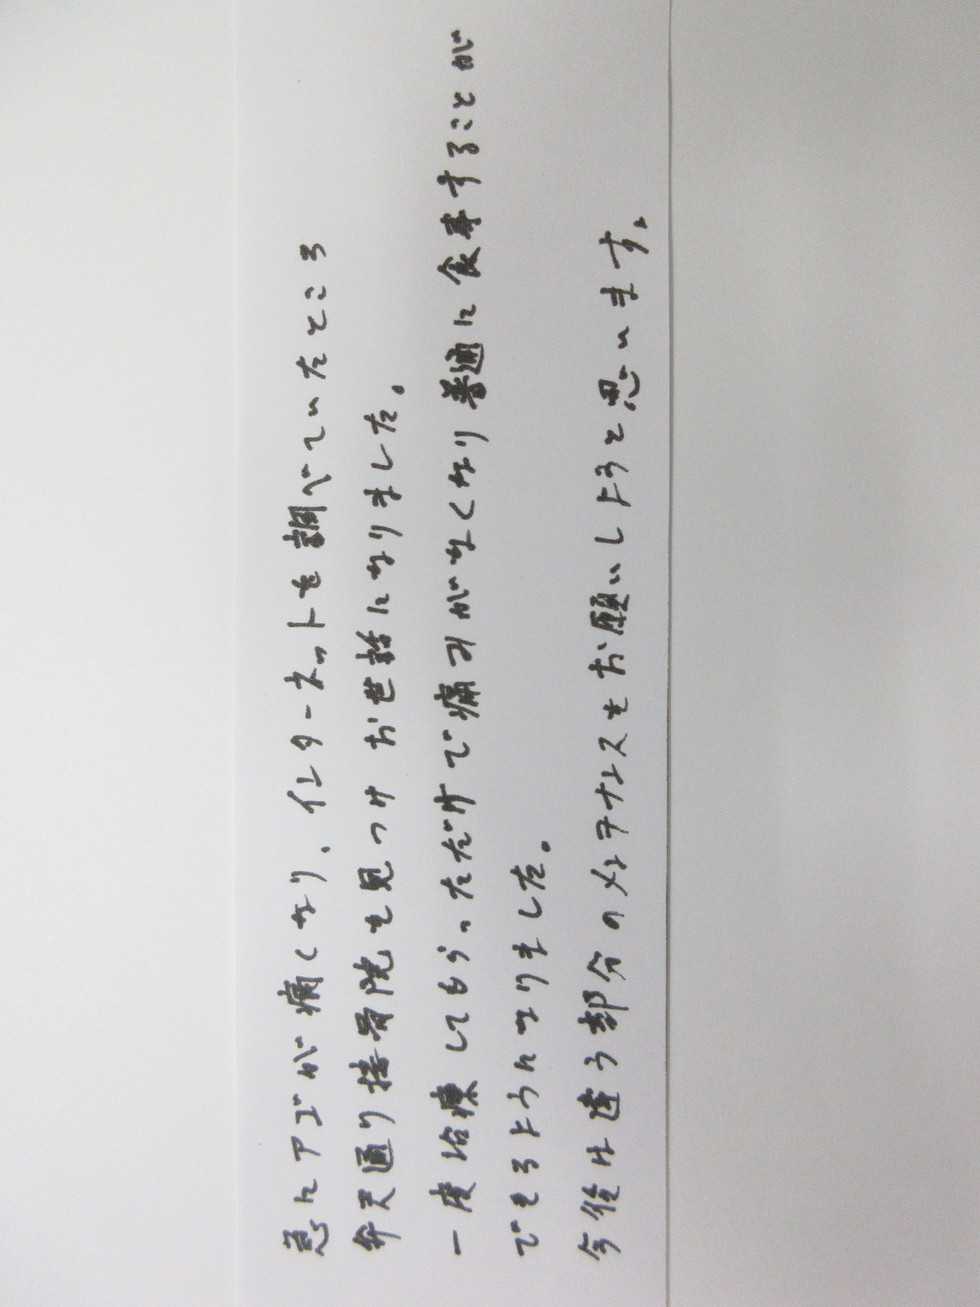 急にアゴが痛くなり、インターネットを調べていたところ
弁天通り接骨院を見つけ お世話になりました。
一度治療してもらっただけで痛みがなくなり普通に食事することが
できるようになりました。
今後は違う部分のメンテナンスをお願いしようと思います。